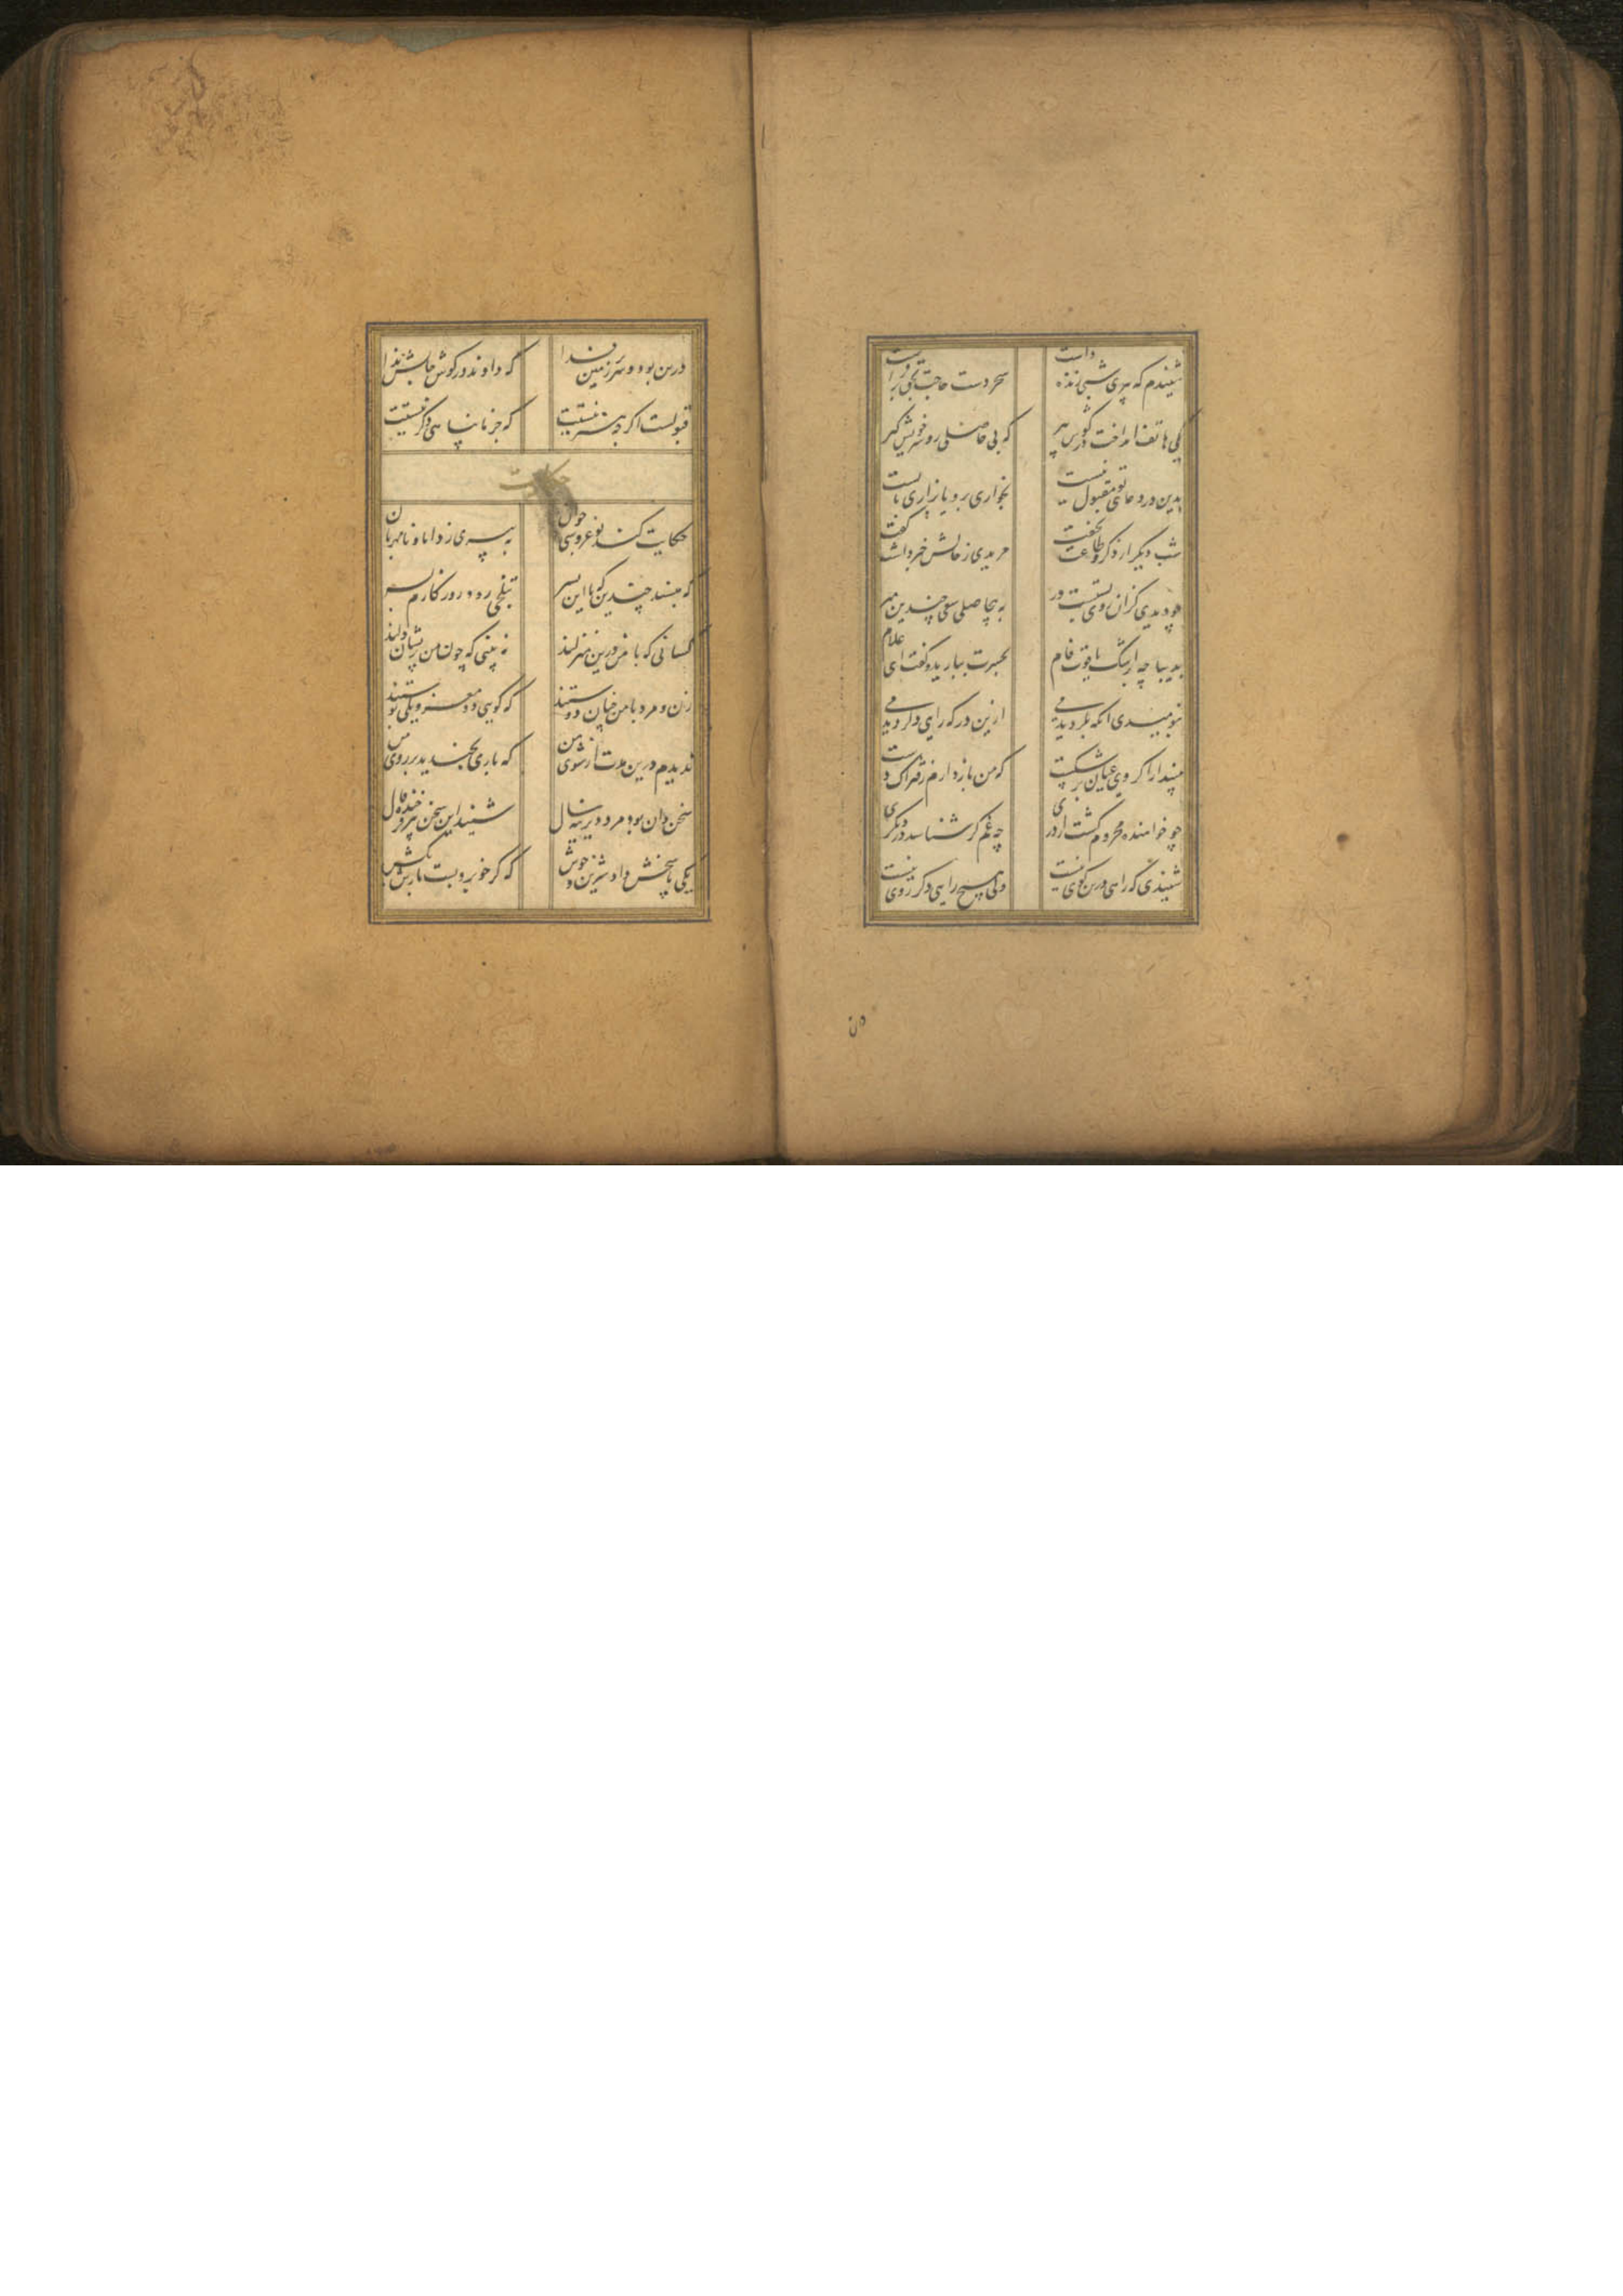 شنیدم که پیری شبی زنده داشت سحر دست حاجت بحق برفراشت
یکی هاتف انداخت در گوش پیر که بی حاصلی رو سر خویش گیر
بدین در دعای تو مقبول نیست بخواری برو یا بزاری بایست
شب دیگر از ذکر و طاعت نخفت مریدی ز حالش خبر داشت گفت
چو دیدی کزان روی بستست در به بیحاصلی سعی چندین مبر
بدیباچه بر اشک یاقوت فام بحسرت ببارید و گفت ای غلام
بنومیدی انکه بگردیدمی ازین در که راهی دگر دیدمی
مپندار اگر وی عنان برشکست که من باز دارم ز فتراک دست
چو خواهنده محروم گشت از دری چه غم گر شناسد در دیگری
شنیدی که راهی درین کوی نیست ولی هیچ راهی دگر روی نیست
درین بود و سر بر زمین فدا که دادند در گوش جانش ندا
قبولست اگرچه هنر نیستت که جز ما پناهی دگر نیستت
حکایت
حکایت کند نوعروسی جوان به پیری ز داماد نامهربان
که مپسند چندین که با این پسر بتلخی رود روزگارم بسر
کسانی که با من درین منزلند نه بینی که چون من پریشان دلند
زن و مرد با من چنان دوستند که گویی دو مغز و یکی پوستند
ندیدم درین مدت از شوی من که باری بخندید بر روی من
سخن دان بود مرد دیرینه سال شنید این سخن پیر فرخنده فال
یکی پاسخش داد شیرین و خوش که گر خوبرویست بارش بکش